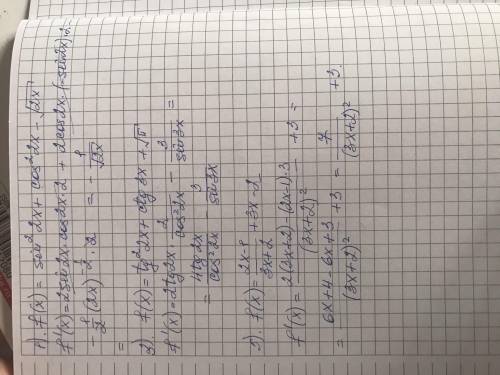 1). f(x) = sin² 2x + cos² 2x - √2x
f'(x) = 2 sin 2x · cos 2x · 2 + 2 cos 2x · (-sin 2x) · 2 -
- 1/2 (2x)^(-1/2) · 2 = - 1/√2x
=
2). f(x) = tg² 2x + ctg 3x + √5
f'(x) = 2 tg 2x · 2/cos² 2x - 3/sin 3x =
= 4 tg 2x/cos² 2x - 3/sin 3x
3). f(x) = (2x-1)/(3x+2) + 3x - 2
f'(x) = (2(3x+2) - (2x-1)·3)/(3x+2)² + 3 =
= (6x+4-6x+3)/(3x+2)² + 3 = 7/(3x+2)² + 3.